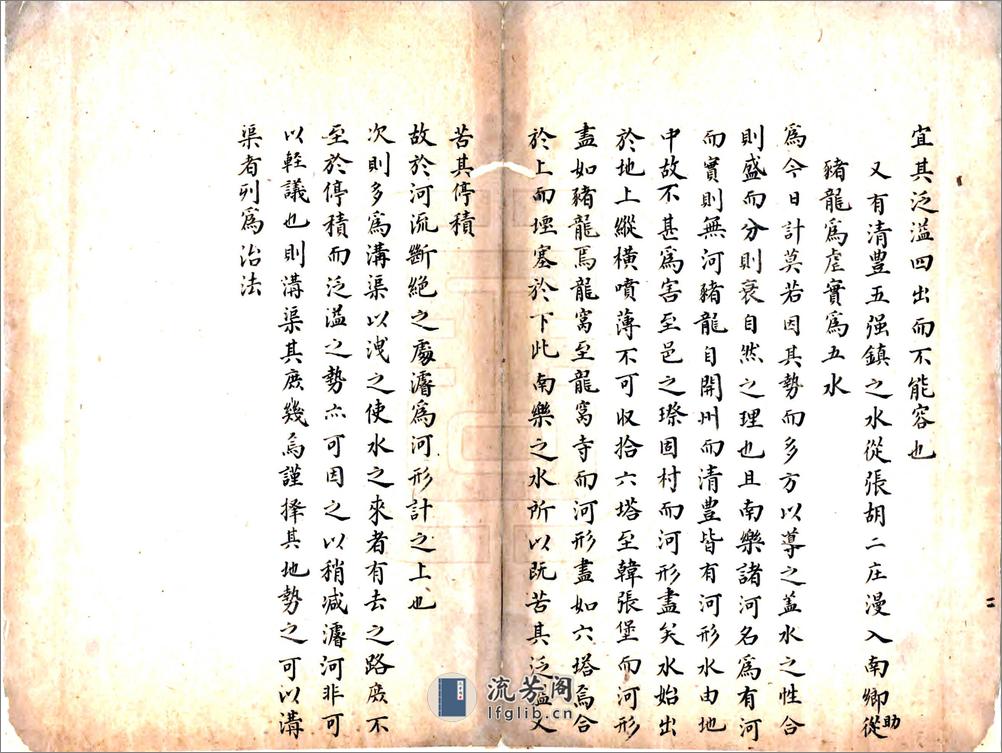 宜其泛溢四出而不能容也
又有清豊五强鎮之水從張胡二庄漫入南鄉從助
豬龍爲虐實爲五水
爲今日計莫若因其勢而多方以導之蓋水之性合
則盛而分則衰自然之理也且南樂諸河名爲有河
而實則無河豬龍自開州而清豊皆有河形水由地
中故不甚爲害至邑之固村而河形盡矣水始出
於地上縱橫噴薄不可収拾六塔至韓張堡而河形
盡如豬龍焉龍窩至龍窩寺而河形盡如六塔焉合
於上而堙塞於下此南樂之水所以既苦其泛溢又
苦其停積
故於河流斷絕之處濬爲河形計之上也
次則多爲溝渠以洩之使水之來者有去之路庶不
至於停積而泛溢之勢亦可因之以稍减濬河非可
以輕議也則溝渠其庶幾焉謹擇其地勢之可以溝
渠者列爲治法
流芳阁
lfglib.cn